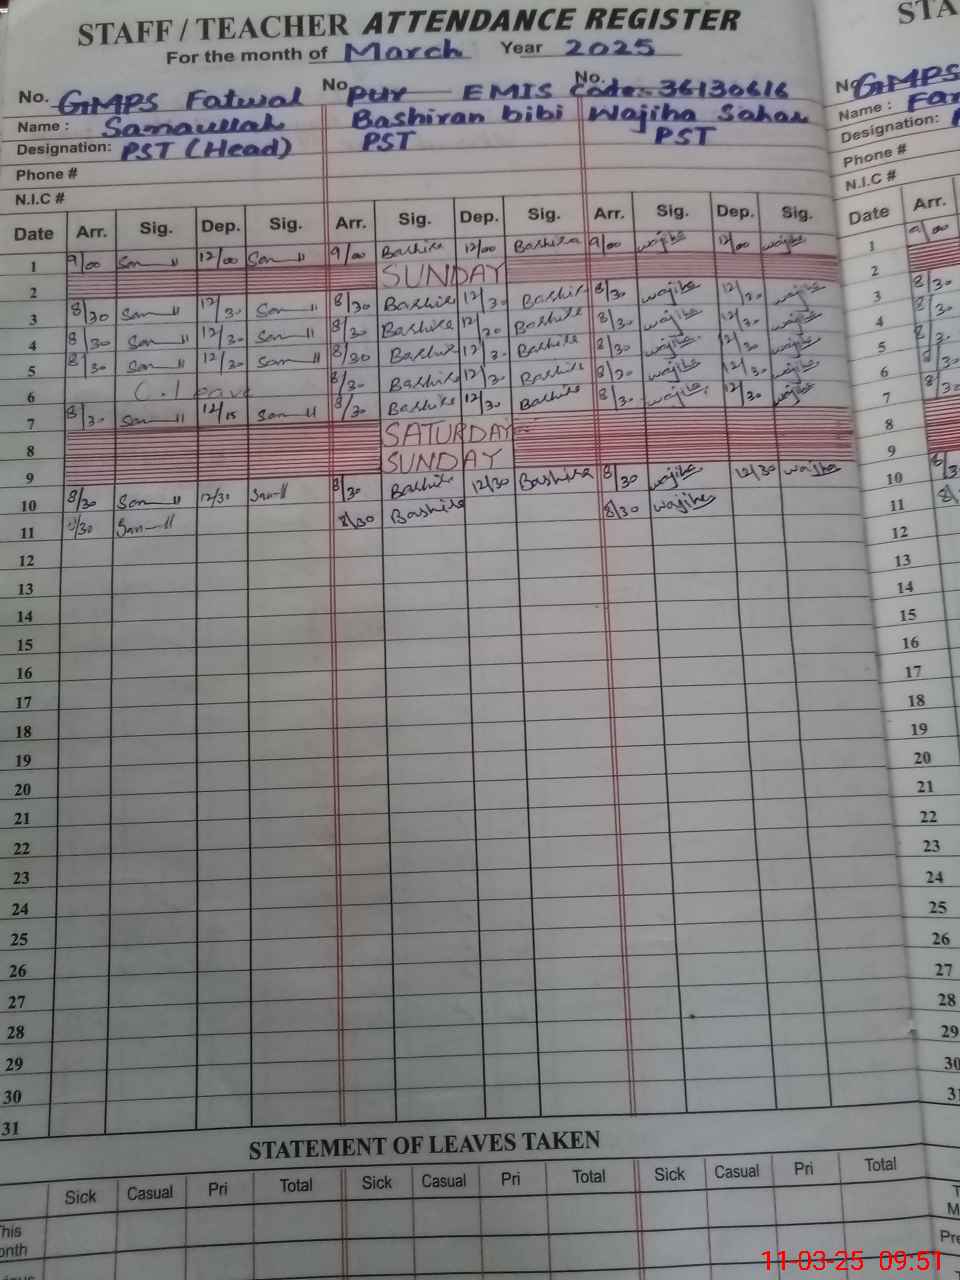 STAFF / TEACHER ATTENDANCE REGISTER
For the month of March Year 2025
No. GMPS Fatwal No. pur EMIS No. Code:- 36130616
Name : Samaullah Bashiran bibi Wajiha Sahar
Designation: PST (Head) PST PST
Phone #
N.I.C #
Date Arr. Sig. Dep. Sig. Arr. Sig. Dep. Sig. Arr. Sig. Dep. Sig.
1 9/00 12/00 9/00 Bashira 12/00 Bashira 9/00 wajiha 12/00 wajiha
2 SUNDAY
3 8/30 12/30 8/30 Bashira 12/30 Bashira 8/30 wajiha 12/30 wajiha
4 8/30 12/30 8/30 Bashira 12/30 Bashira 8/30 wajiha 12/30 wajiha
5 8/30 12/30 8/30 Bashira 12/30 Bashira 8/30 wajiha 12/30 wajiha
6 C. Leave 8/30 Bashira 12/30 Bashira 8/30 wajiha 12/30 wajiha
7 8/30 12/15 8/30 Bashira 12/30 Bashira 8/30 wajiha 12/30 wajiha
8 SATURDAY
9 SUNDAY
10 8/30 12/30 8/30 Bashira 12/30 Bashira 8/30 wajiha 12/30 wajiha
11 8/30 8/30 Bashira 8/30 wajiha
12
13
14
15
16
17
18
19
20
21
22
23
24
25
26
27
28
29
30
31
STATEMENT OF LEAVES TAKEN
Sick Casual Pri Total Sick Casual Pri Total Sick Casual Pri Total
This
onth
STA
No. GMPS
Name : Far
Designation:
Phone #
N.I.C #
Date Arr.
1 9/00
2
3 8/30
4 8/30
5
6
7 8/30
8
9
10
11
12
13
14
15
16
17
18
19
20
21
22
23
24
25
26
27
28
29
30
31
Pre
11-03-25 09:51